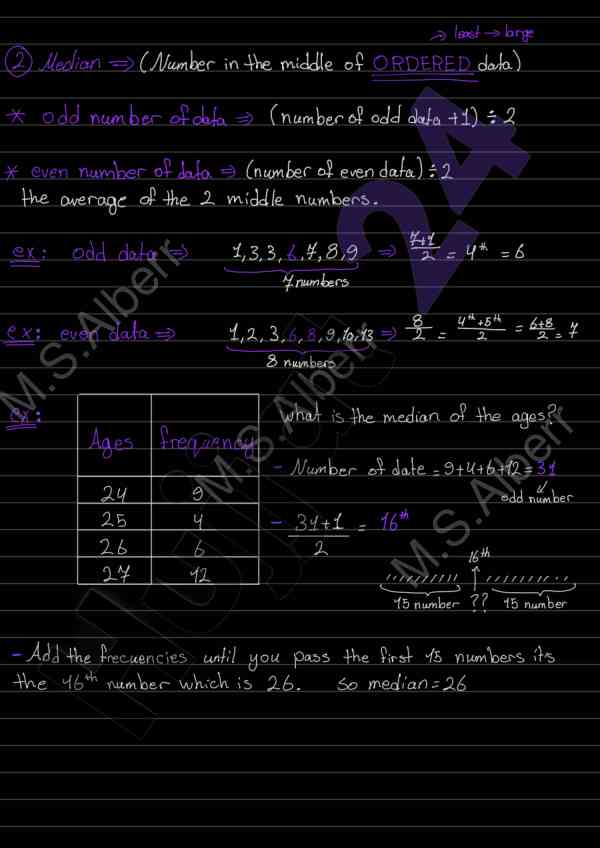 → least → large
② Median ⇒ (Number in the middle of ORDERED data)
* odd number of data ⇒ (number of odd data +1) ÷ 2
* even number of data ⇒ (number of even data) ÷ 2
the average of the 2 middle numbers.
ex: odd data ⇒ 1,3,3,6,7,8,9 ⇒ 7+1/2 = 4th = 6
7 numbers
ex: even data ⇒ 1,2,3,6,8,9,10,13 ⇒ 8/2 = 4th+5th/2 = 6+8/2 = 7
8 numbers
ex:
what is the median of the ages?
Ages frequency
24 9
25 4
26 6
27 12
- Number of date = 9+4+6+12 = 31
odd number
- 31+1/2 = 16th
16th
15 number ?? 15 number
- Add the frecuencies until you pass the first 15 numbers its
the 16th number which is 26. so median = 26
24
M.S.Alberr
M.S.Alberr
M.S.Alberr